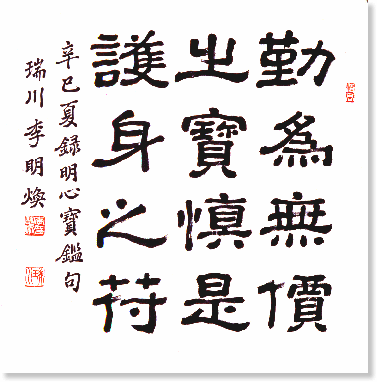 勤為無價
之寶慎是
護身之符
辛巳夏録明心寶鑑句
瑞川李明煥